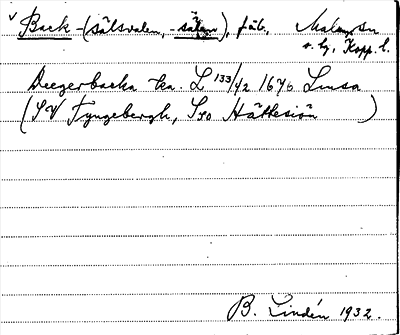 v Back-(sätsvalen, -sätern), fäb., Malung sn
o. tg, Kopp. l.
Deegerbacka ka. L 133/42 1670 Limsa
(SV Fyngebergh, Sso Hättesiön )
B. Lindén 1932.